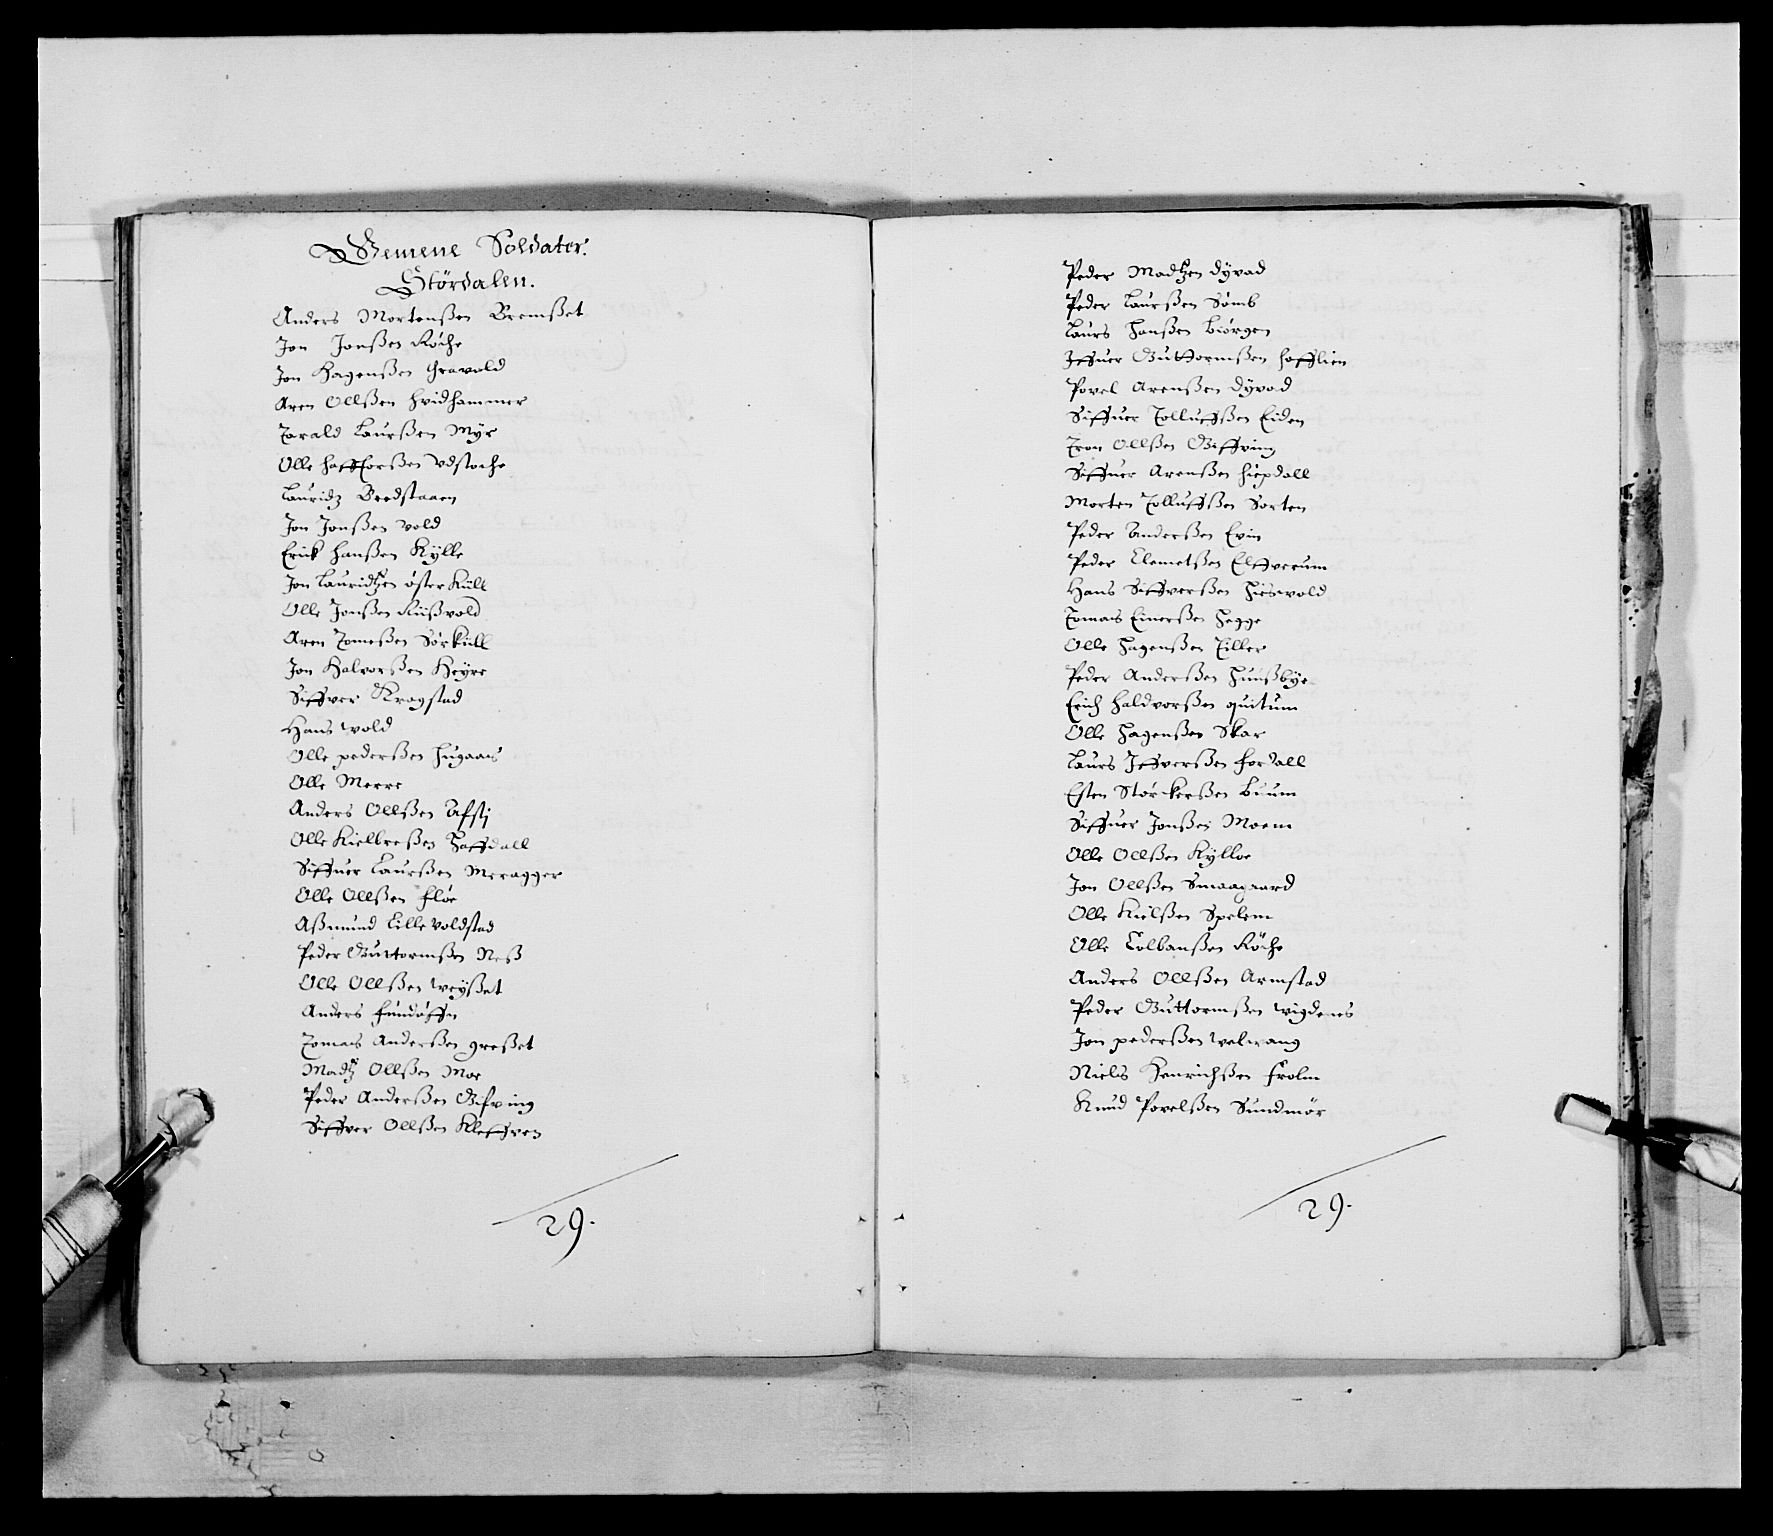 Gemene Soldater.
Stördalen.
Anders Mortenßen Bremßet
Jon Jonßen Röche
Jon Hagenßen Gravold
Aren Ollßen Hvidhammer
Torald Laurßen Myr
Olle Haffforßen Vdstoche
Lauridz Bredstaaen
Jon Jonßen Vold
Erick Hanßen Kÿlle
Jon Lauridtzen österKüll
Olle Jonßen Rüßvold
Aren Tomeßen SörKüll
Jon Halvorßen Heyre
Siffver Kragstad
Hans Wold
Olle pederßen Hugaas
Olle Merre
Anders Ollßen
Olle Kielbreßen Haffdall
Siffuer Laurßen Meragger
Olle Ollßen Flöe
Aßmund Lille Voldstad
Peder Guttormßen Neß
Olle Ollßen Weyßet
Anders
Tomas Anderßen greßet
Madtz Ollßen Moe
Peder Anderßen Gifving
Siffver Ollßen Kleffven
29.
Peder Madtzen Dÿvad
Peder Laurßen Sömb
Laurs Hanßen Biörgen
Iffuer Guttormßen Hofflien
Povel Arenßen Dÿvad
Siffuer Tolluffßen Eiden
Tron Ollßen Giffving
Siffuer Arenßen Hiepdall
Morten Tolluffßen Sorten
Peder Anderßen Evin
Peder Clemetßen Elffverum
Hans Siffverßen Hieswold
Tomas Einerßen Hegge
Olle Hagenßen Tiller
Peder Anderßen Hunßbÿe
Erich Haldvorßen quitum
Olle Hagenßen Skar
Laurs Iffverßen Fordall
Esten Störckerßen Buum
Siffuer Jonßen Moem
Olle Ollßen Kÿlloe
Jon Ollßen Smaagaard
Olle Kielßen Spelem
Olle Colbanßen Röche
Anders Ollßen Armstad
Peder Guttormßen Wigdenes
Jon pederßen Welvang
Niels Henrichßen Frolm
Knud Povelßen Sundmör
29.